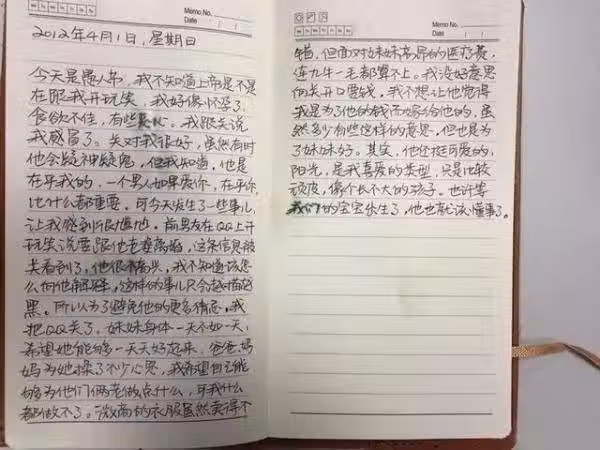 Memo No.
Date
2012年4月1日,星期日
今天是愚人节,我不知道上帝是不是
在跟我开玩笑,我好像怀孕了,
食欲不佳,有些恶心。我跟关说
我感冒了。关对我很好,虽然有时
他会疑神疑鬼,但我知道,他是
在乎我的,一个男人如果爱你,在乎你
比什么都重要。可今天发生了一些事儿,
让我感到很尴尬。前男友在QQ上开
玩笑说要跟他老婆离婚,这条信息被
关看到了,他很不高兴,我不知道该怎
么向他解释,这样的事儿只会越描越
黑。所以为了避免他的更多猜忌,我
把QQ关了。妹妹身体一天不如一天,
希望她能够一天天好起来,爸爸,妈
妈为她操了不少心思,我希望自己能
够为他们俩老做点什么,可我什么
都做不了。微商的衣服虽然卖得不
Memo No.
Date
错,但面对妹妹高昂的医疗费,
连九牛一毛都算不上。我没好意思
向关开口要钱,我不想让他觉得
我是为了他的钱而嫁给他的,虽
然多少有些这样的意思,但也是为
了妹妹好。其实,他还挺可爱的,
阳光,是我喜爱的类型,只是比较
顽皮,像个长不大的孩子。也许等
我们的宝宝出生了,他也就该懂事了。